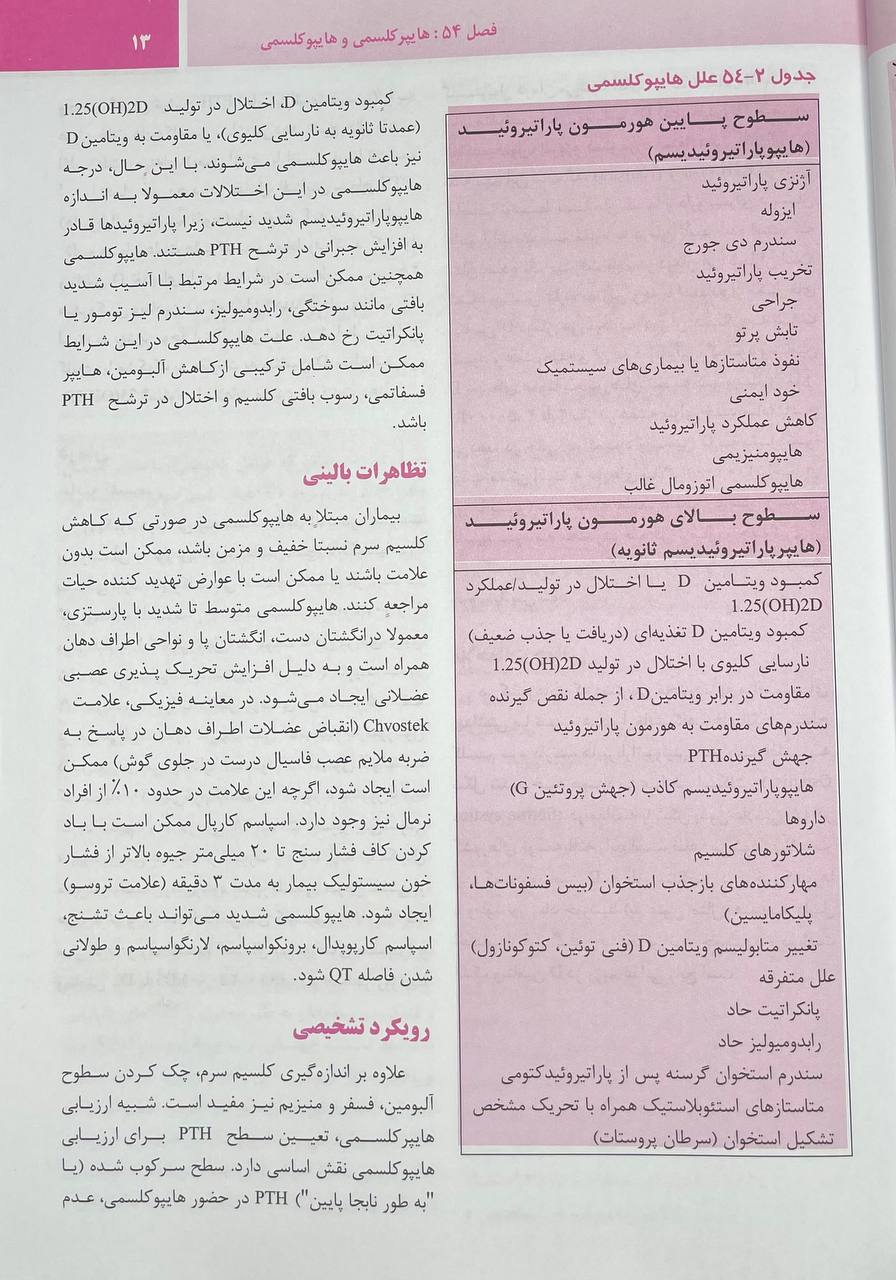 فصل ۵۴ : هایپرکلسمی و هایپوکلسمی
۱۳
جدول ۲-۵۴ علل هایپوکلسمی
سطوح پایین هورمون پاراتیروئید
(هایپوپاراتیروئیدیسم)
آژنزی پاراتیروئید
ایزوله
سندرم دی جورج
تخریب پاراتیروئید
جراحی
تابش پرتو
نفوذ متاستازها یا بیماری‌های سیستمیک
خود ایمنی
کاهش عملکرد پاراتیروئید
هایپومنیزیمی
هایپوکلسمی اتوزومال غالب
سطوح بالای هورمون پاراتیروئید
(هایپرپاراتیروئیدیسم ثانویه)
کمبود ویتامین D یا اختلال در تولید/عملکرد
1.25(OH)2D
کمبود ویتامین D تغذیه‌ای (دریافت یا جذب ضعیف)
نارسایی کلیوی با اختلال در تولید 1.25(OH)2D
مقاومت در برابر ویتامینD ، از جمله نقص گیرنده
سندرم‌های مقاومت به هورمون پاراتیروئید
جهش گیرندهPTH
هایپوپاراتیروئیدیسم کاذب (جهش پروتئین G)
داروها
شلاتورهای کلسیم
مهارکننده‌های بازجذب استخوان (بیس فسفونات‌ها،
پلیکامایسین)
تغییر متابولیسم ویتامین D (فنی توئین، کتوکونازول)
علل متفرقه
پانکراتیت حاد
رابدومیولیز حاد
سندرم استخوان گرسنه پس از پاراتیروئیدکتومی
متاستازهای استئوبلاستیک همراه با تحریک مشخص
تشکیل استخوان (سرطان پروستات)
کمبود ویتامین D، اختلال در تولید 1.25(OH)2D
(عمدتا ثانویه به نارسایی کلیوی)، یا مقاومت به ویتامین D
نیز باعث هایپوکلسمی می‌شوند. با این حال، درجه
هایپوکلسمی در این اختلالات معمولا به اندازه
هایپوپاراتیروئیدیسم شدید نیست، زیرا پاراتیروئیدها قادر
به افزایش جبرانی در ترشح PTH هستند. هایپوکلسمی
همچنین ممکن است در شرایط مرتبط با آسیب شدید
بافتی مانند سوختگی، رابدومیولیز، سندرم لیز تومور یا
پانکراتیت رخ دهد. علت هایپوکلسمی در این شرایط
ممکن است شامل ترکیبی ازکاهش آلبومین، هایپر
فسفاتمی، رسوب بافتی کلسیم و اختلال در ترشح PTH
باشد.
تظاهرات بالینی
بیماران مبتلا به هایپوکلسمی در صورتی که کاهش
کلسیم سرم نسبتا خفیف و مزمن باشد، ممکن است بدون
علامت باشند یا ممکن است با عوارض تهدید کننده حیات
مراجعه کنند. هایپوکلسمی متوسط تا شدید با پارستزی،
معمولا درانگشتان دست، انگشتان پا و نواحی اطراف دهان
همراه است و به دلیل افزایش تحریک پذیری عصبی
عضلانی ایجاد می‌شود. در معاینه فیزیکی، علامت
Chvostek (انقباض عضلات اطراف دهان در پاسخ به
ضربه ملایم عصب فاسیال درست در جلوی گوش) ممکن
است ایجاد شود، اگرچه این علامت در حدود ۱۰٪ از افراد
نرمال نیز وجود دارد. اسپاسم کارپال ممکن است با باد
کردن کاف فشار سنج تا ۲۰ میلی‌متر جیوه بالاتر از فشار
خون سیستولیک بیمار به مدت ۳ دقیقه (علامت تروسو)
ایجاد شود. هایپوکلسمی شدید می‌تواند باعث تشنج،
اسپاسم کارپوپدال، برونکواسپاسم، لارنگواسپاسم و طولانی
شدن فاصله QT شود.
رویکرد تشخیصی
علاوه بر اندازه‌گیری کلسیم سرم، چک کردن سطوح
آلبومین، فسفر و منیزیم نیز مفید است. شبیه ارزیابی
هایپرکلسمی، تعیین سطح PTH برای ارزیابی
هایپوکلسمی نقش اساسی دارد. سطح سرکوب شده (یا
"به طور نابجا پایین") PTH در حضور هایپوکلسمی، عدم